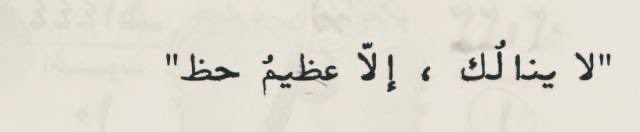 "لا ينالُك ، إلّا عظيمُ حظ"